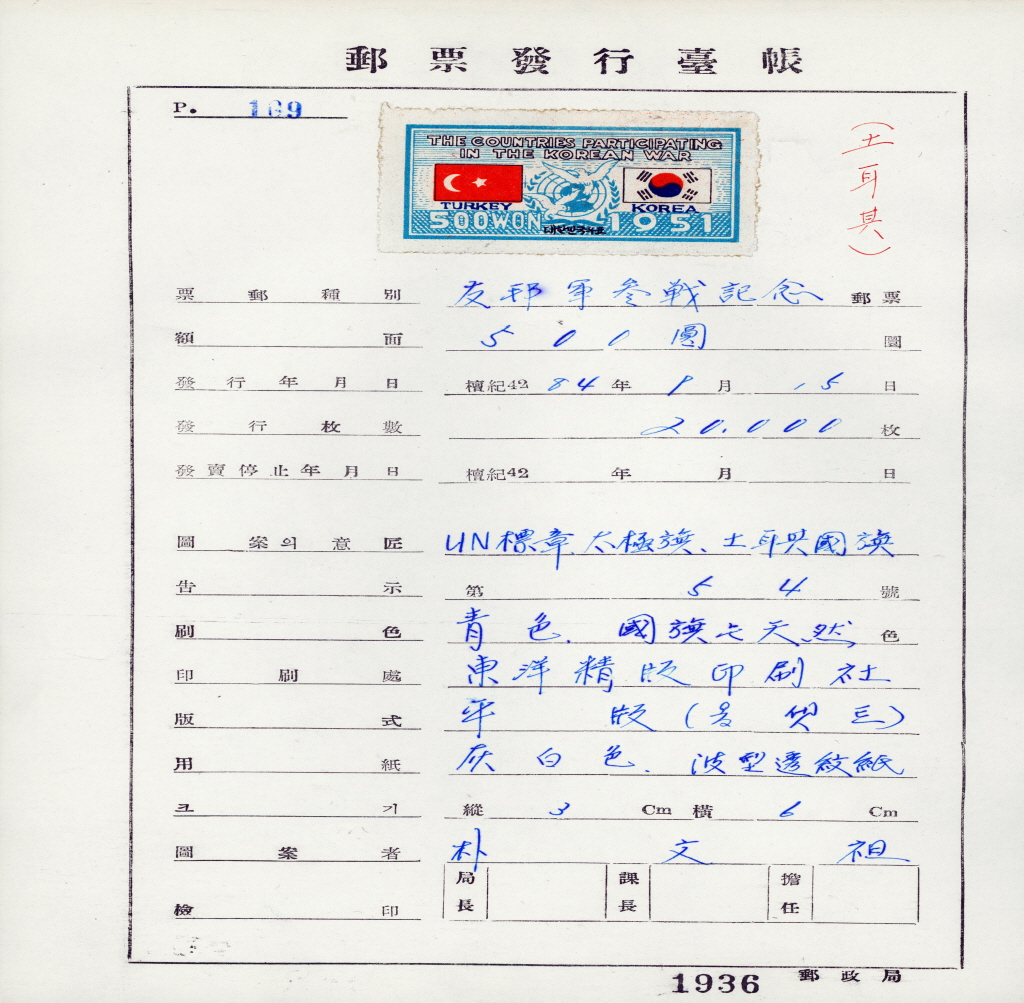 郵票發行臺帳
P. 199
(土耳其)
THE COUNTRIES PARTICIPATING
IN THE KOREAN WAR
TURKEY KOREA
500WON 대한민국우표 1951
票郵種別 友邦軍參戰記念 郵票
額面 500圜 圜
發行年月日 檀紀4284年9月15日
發行枚數 20.000枚
發賣停止年月日 檀紀42 年 月 日
圖案의意匠 UN標章、太極旗、土耳其國旗
告示 第54號
刷色 青色. 國旗と天然色
印刷處 東洋精版印刷社
版式 平版
用紙 灰白色. 波型透紋紙
크기 縱 3 Cm 橫 6 Cm
圖案者 朴文祖
檢印 局長 課長 擔任
1936 郵政局